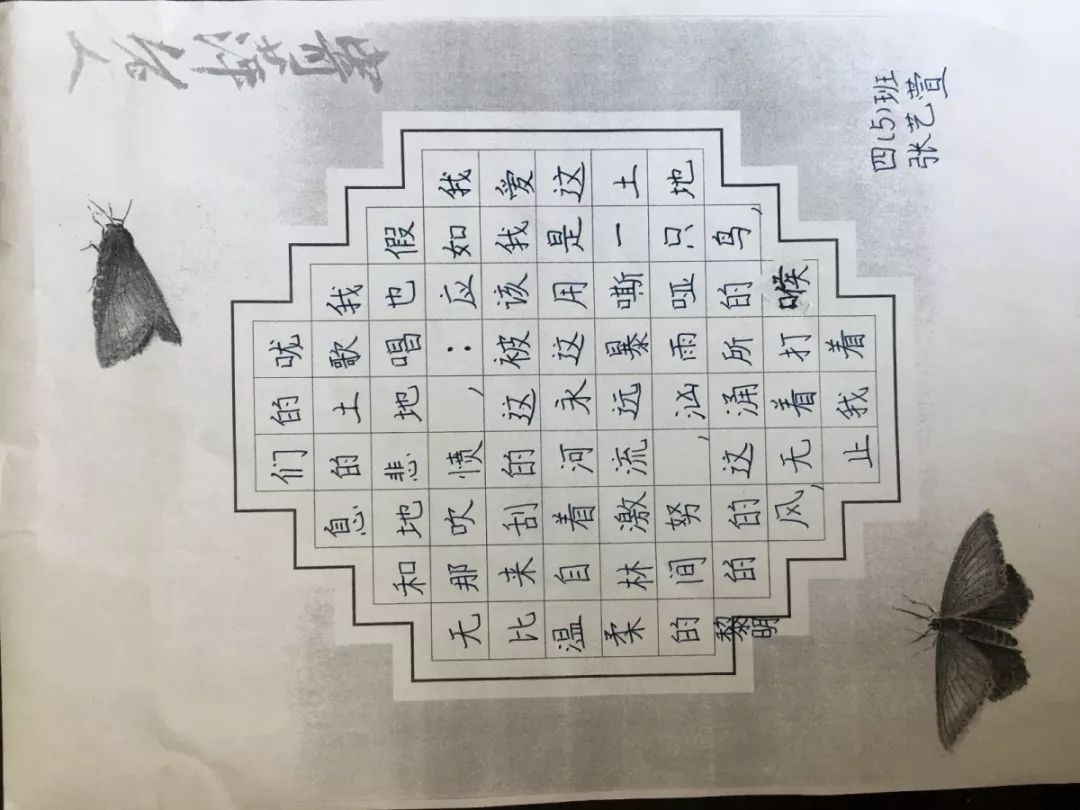 四(5)班
张艺萱
我爱这土地
假如我是一只鸟,
我也应该用嘶哑的喉
咙歌唱:被这暴雨所打着
的土地,这永远汹涌着我
们的悲愤的河流,这无止
息地吹刮着激努的风,
和那来自林间的的
无比温柔的黎明